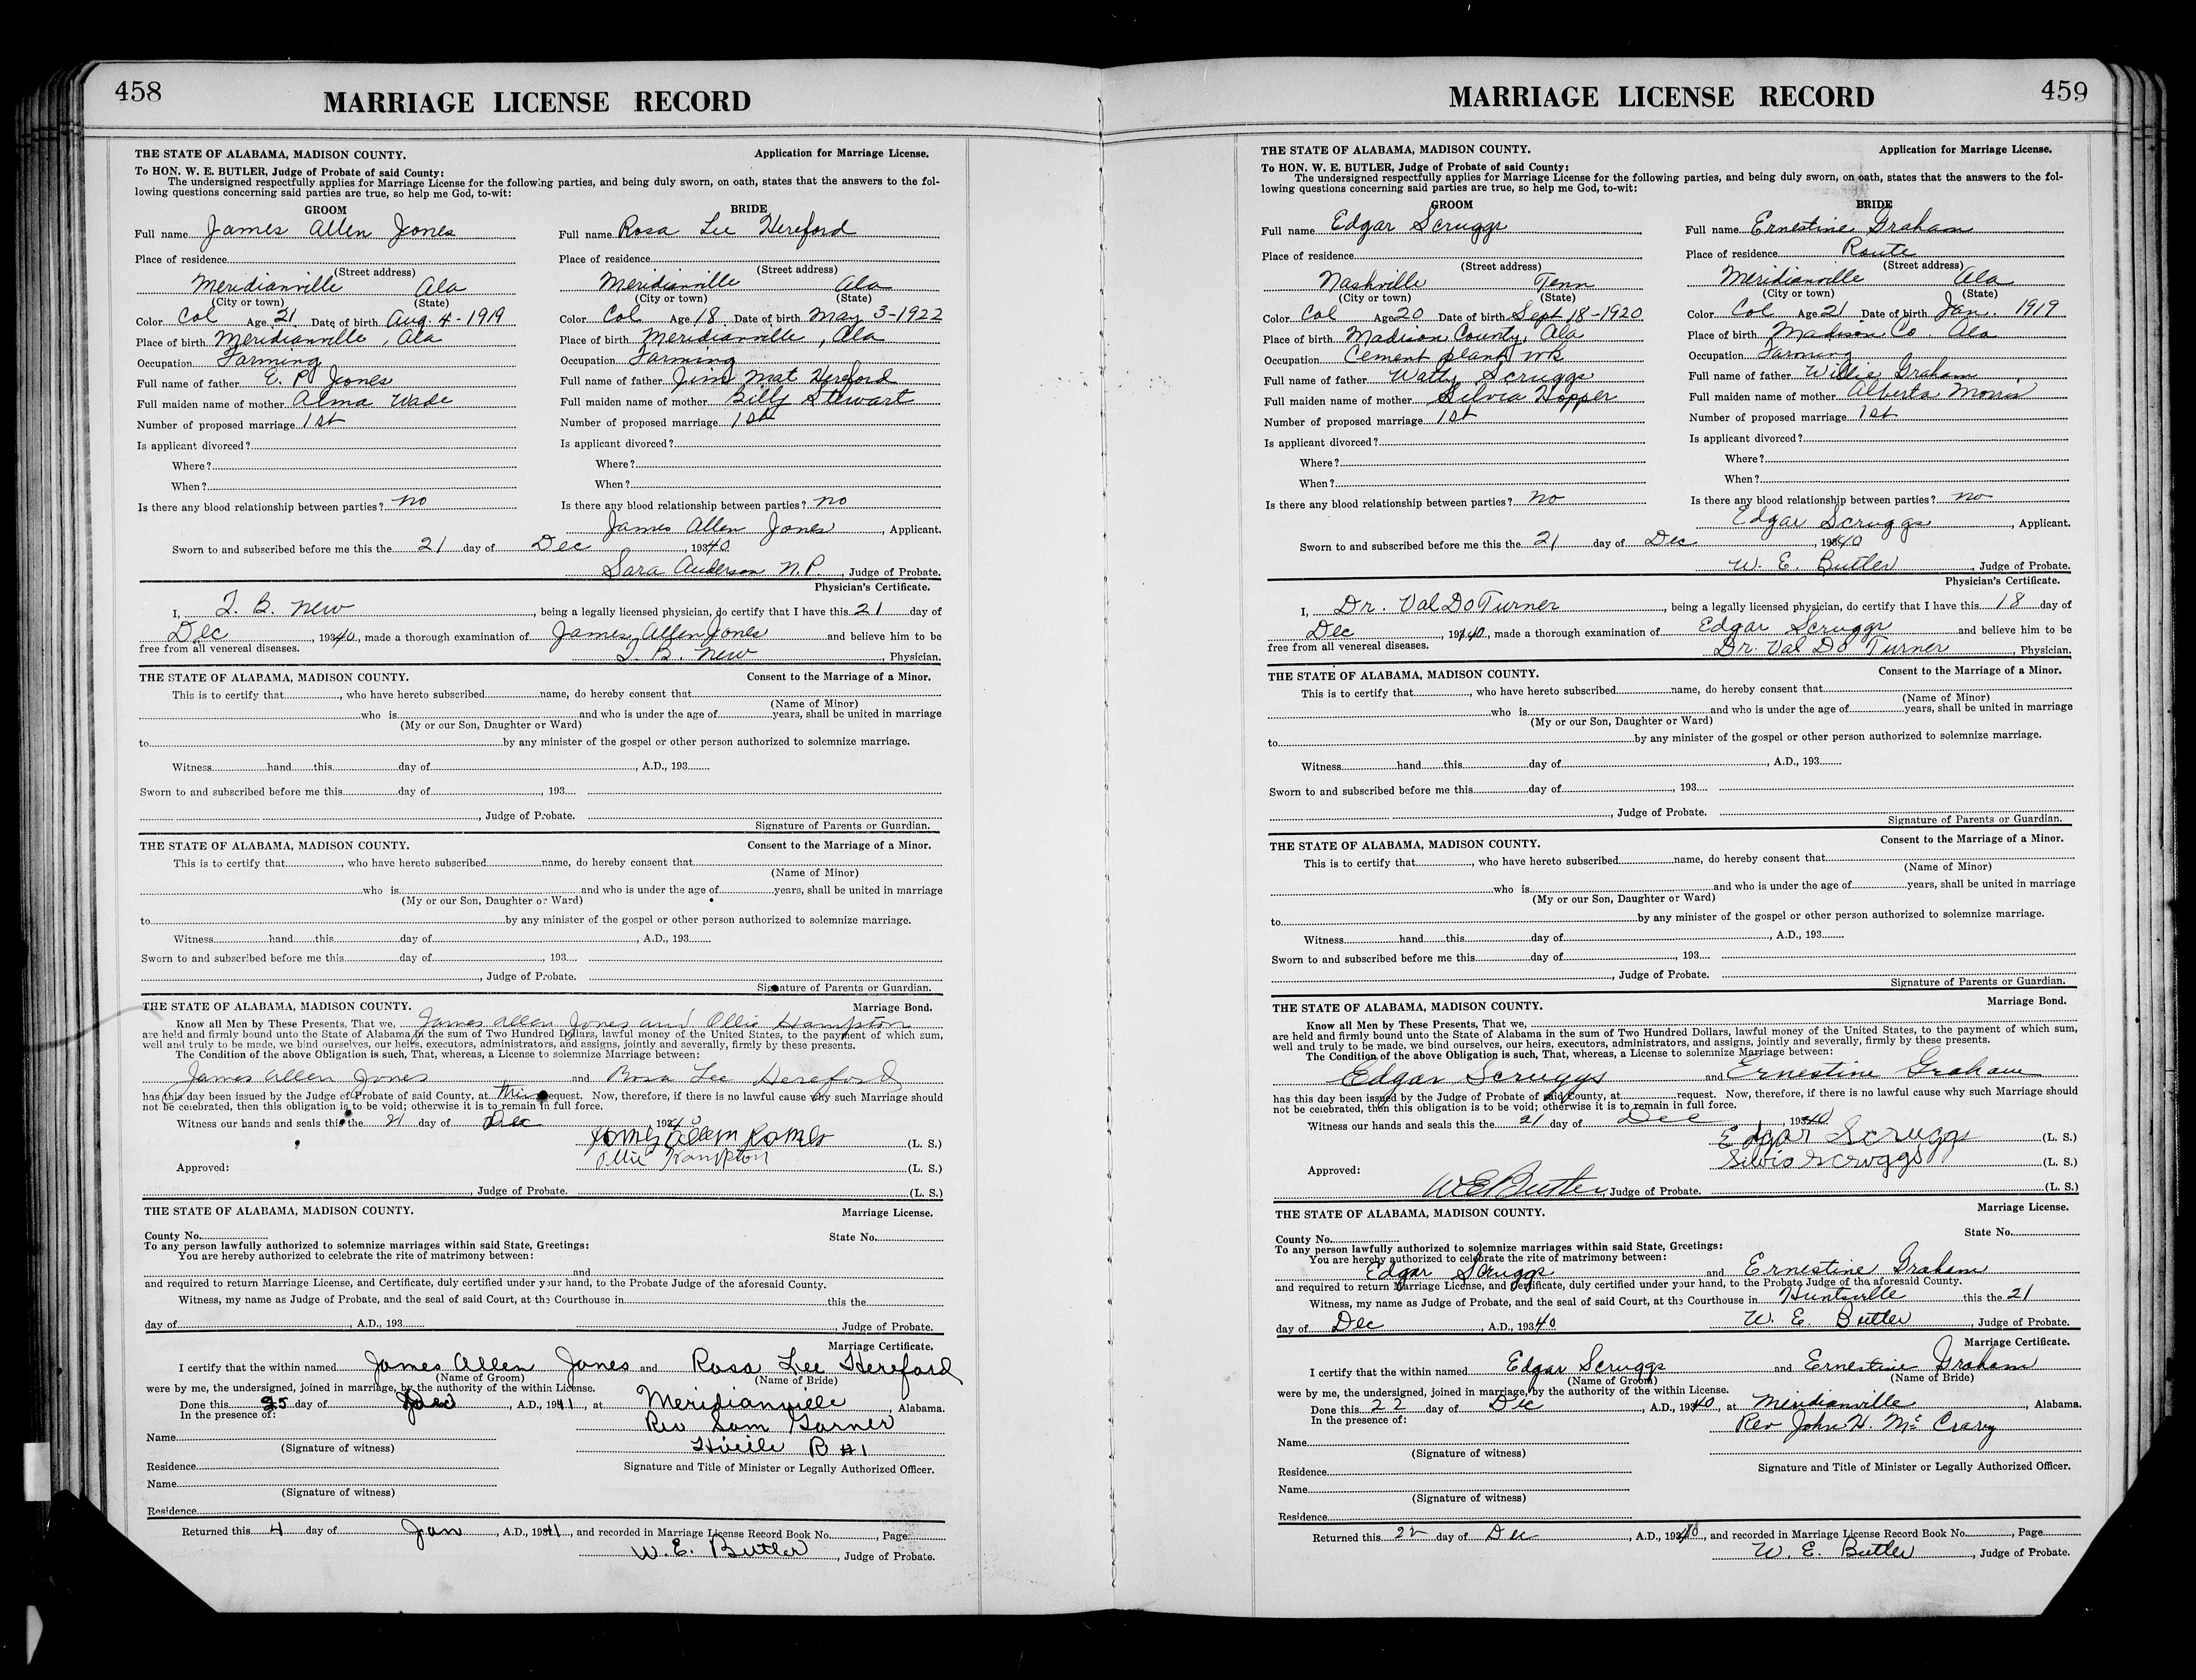 458
MARRIAGE LICENSE RECORD
THE STATE OF ALABAMA, MADISON COUNTY. Application for Marriage License.
To HON. W. E. BUTLER, Judge of Probate of said County:
The undersigned respectfully applies for Marriage License for the following parties, and being duly sworn, on oath, states that the answers to the fol-
lowing questions concerning said parties are true, so help me God, to-wit:
GROOM BRIDE
Full name James Allen Jones Full name Rosa Lee Hereford
Place of residence Place of residence
(Street address) (Street address)
Meridianville Ala Meridianville Ala
(City or town) (State) (City or town) (State)
Color Col Age 21 Date of birth Aug. 4-1919 Color Col Age 18 Date of birth May 3-1922
Place of birth Meridianville, Ala Place of birth Meridianville, Ala
Occupation Farming Occupation Farming
Full name of father E. P. Jones Full name of father Jim Mat Hereford
Full maiden name of mother Alma Wade Full maiden name of mother Billy Stewart
Number of proposed marriage 1st Number of proposed marriage 1st
Is applicant divorced? Is applicant divorced?
Where? Where?
When? When?
Is there any blood relationship between parties? no Is there any blood relationship between parties? no
James Allen Jones, Applicant.
Sworn to and subscribed before me this the 21 day of Dec, 19340
Sara Anderson N.P., Judge of Probate.
Physician's Certificate.
I, I. B. New, being a legally licensed physician, do certify that I have this 21 day of
Dec, 19340, made a thorough examination of James Allen Jones and believe him to be
free from all venereal diseases.
I. B. New, Physician.
THE STATE OF ALABAMA, MADISON COUNTY. Consent to the Marriage of a Minor.
This is to certify that, who have hereto subscribed name, do hereby consent that
(Name of Minor)
who is and who is under the age of years, shall be united in marriage
(My or our Son, Daughter or Ward)
to by any minister of the gospel or other person authorized to solemnize marriage.
Witness hand this day of, A.D., 193
Sworn to and subscribed before me this day of, 193
, Judge of Probate.
Signature of Parents or Guardian.
THE STATE OF ALABAMA, MADISON COUNTY. Consent to the Marriage of a Minor.
This is to certify that, who have hereto subscribed name, do hereby consent that
(Name of Minor)
who is and who is under the age of years, shall be united in marriage
(My or our Son, Daughter or Ward)
to by any minister of the gospel or other person authorized to solemnize marriage.
Witness hand this day of, A.D., 193
Sworn to and subscribed before me this day of, 193
, Judge of Probate.
Signature of Parents or Guardian.
THE STATE OF ALABAMA, MADISON COUNTY. Marriage Bond.
Know all Men by These Presents, That we, James Allen Jones and Ollie Hampton
are held and firmly bound unto the State of Alabama in the sum of Two Hundred Dollars, lawful money of the United States, to the payment of which sum,
well and truly to be made, we bind ourselves, our heirs, executors, administrators, and assigns, jointly and severally, firmly by these presents.
The Condition of the above Obligation is such, That, whereas, a License to solemnize Marriage between:
James Allen Jones and Rosa Lee Hereford
has this day been issued by the Judge of Probate of said County, at their request. Now, therefore, if there is no lawful cause why such Marriage should
not be celebrated, then this obligation is to be void; otherwise it is to remain in full force.
Witness our hands and seals this the 21 day of Dec 19340
James Allen Jones (L. S.)
Ollie Hampton
Approved: (L. S.)
, Judge of Probate. (L. S.)
THE STATE OF ALABAMA, MADISON COUNTY. Marriage License.
County No. State No.
To any person lawfully authorized to solemnize marriages within said State, Greetings:
You are hereby authorized to celebrate the rite of matrimony between:
and
and required to return Marriage License, and Certificate, duly certified under your hand, to the Probate Judge of the aforesaid County.
Witness, my name as Judge of Probate, and the seal of said Court, at the Courthouse in this the
day of, A.D., 193, Judge of Probate.
Marriage Certificate.
I certify that the within named James Allen Jones and Rosa Lee Hereford
(Name of Groom) (Name of Bride)
were by me, the undersigned, joined in marriage, by the authority of the within License.
Done this 25 day of, A.D., 1941, at Meridianville, Alabama.
In the presence of: Rev Sam Garner
Name Hville R #1
(Signature of witness)
Residence Signature and Title of Minister or Legally Authorized Officer.
Name
(Signature of witness)
Residence
Returned this 4 day of Jan, A.D., 1941, and recorded in Marriage License Record Book No., Page
W. E. Butler, Judge of Probate.
459
MARRIAGE LICENSE RECORD
THE STATE OF ALABAMA, MADISON COUNTY. Application for Marriage License.
To HON. W. E. BUTLER, Judge of Probate of said County:
The undersigned respectfully applies for Marriage License for the following parties, and being duly sworn, on oath, states that the answers to the fol-
lowing questions concerning said parties are true, so help me God, to-wit:
GROOM BRIDE
Full name Edgar Scruggs Full name Ernestine Graham
Place of residence Place of residence Route
(Street address) (Street address)
Nashville Tenn Meridianville Ala
(City or town) (State) (City or town) (State)
Color Col Age 20 Date of birth Sept 18-1920 Color Col Age 21 Date of birth Jan. 1919
Place of birth Madison County, Ala Place of birth Madison Co. Ala
Occupation Cement plant wk Occupation Farming
Full name of father Watty Scruggs Full name of father Willie Graham
Full maiden name of mother Silvia Hopper Full maiden name of mother Alberta Morris
Number of proposed marriage 1st Number of proposed marriage 1st
Is applicant divorced? Is applicant divorced?
Where? Where?
When? When?
Is there any blood relationship between parties? no Is there any blood relationship between parties? no
Edgar Scruggs, Applicant.
Sworn to and subscribed before me this the 21 day of Dec, 19340
W. E. Butler, Judge of Probate.
Physician's Certificate.
I, Dr. Val Do Turner, being a legally licensed physician, do certify that I have this 18 day of
Dec, 19340, made a thorough examination of Edgar Scruggs and believe him to be
free from all venereal diseases.
Dr. Val Do Turner, Physician.
THE STATE OF ALABAMA, MADISON COUNTY. Consent to the Marriage of a Minor.
This is to certify that, who have hereto subscribed name, do hereby consent that
(Name of Minor)
who is and who is under the age of years, shall be united in marriage
(My or our Son, Daughter or Ward)
to by any minister of the gospel or other person authorized to solemnize marriage.
Witness hand this day of, A.D., 193
Sworn to and subscribed before me this day of, 193
, Judge of Probate.
Signature of Parents or Guardian.
THE STATE OF ALABAMA, MADISON COUNTY. Consent to the Marriage of a Minor.
This is to certify that, who have hereto subscribed name, do hereby consent that
(Name of Minor)
who is and who is under the age of years, shall be united in marriage
(My or our Son, Daughter or Ward)
to by any minister of the gospel or other person authorized to solemnize marriage.
Witness hand this day of, A.D., 193
Sworn to and subscribed before me this day of, 193
, Judge of Probate.
Signature of Parents or Guardian.
THE STATE OF ALABAMA, MADISON COUNTY. Marriage Bond.
Know all Men by These Presents, That we,
are held and firmly bound unto the State of Alabama in the sum of Two Hundred Dollars, lawful money of the United States, to the payment of which sum,
well and truly to be made, we bind ourselves, our heirs, executors, administrators, and assigns, jointly and severally, firmly by these presents.
The Condition of the above Obligation is such, That, whereas, a License to solemnize Marriage between:
Edgar Scruggs and Ernestine Graham
has this day been issued by the Judge of Probate of said County, at request. Now, therefore, if there is no lawful cause why such Marriage should
not be celebrated, then this obligation is to be void; otherwise it is to remain in full force.
Witness our hands and seals this the 21 day of Dec, 19340
Edgar Scruggs (L. S.)
Silvio Scruggs (L. S.)
Approved:
W E Butler, Judge of Probate. (L. S.)
THE STATE OF ALABAMA, MADISON COUNTY. Marriage License.
County No. State No.
To any person lawfully authorized to solemnize marriages within said State, Greetings:
You are hereby authorized to celebrate the rite of matrimony between:
Edgar Scruggs and Ernestine Graham
and required to return Marriage License, and Certificate, duly certified under your hand, to the Probate Judge of the aforesaid County.
Witness, my name as Judge of Probate, and the seal of said Court, at the Courthouse in Huntsville this the 21
day of Dec, A.D., 19340 W. E. Butler, Judge of Probate.
Marriage Certificate.
I certify that the within named Edgar Scruggs and Ernestine Graham
(Name of Groom) (Name of Bride)
were by me, the undersigned, joined in marriage, by the authority of the within License.
Done this 22 day of Dec, A.D., 19340, at Meridianville, Alabama.
In the presence of: Rev John H. Mc Crary
Name
(Signature of witness)
Residence Signature and Title of Minister or Legally Authorized Officer.
Name
(Signature of witness)
Residence
Returned this 22 day of Dec, A.D., 19340, and recorded in Marriage License Record Book No., Page
W. E. Butler, Judge of Probate.